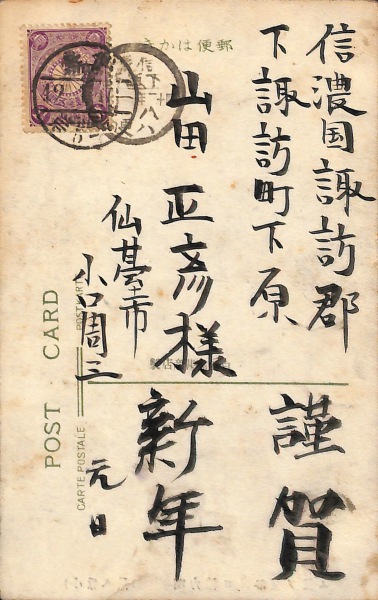 郵便はかき
信濃国諏訪郡
下諏訪町下原
山田正彦様
仙臺市
小口周三
謹賀
新年
元日
POST CARD
CARTE POSTALE